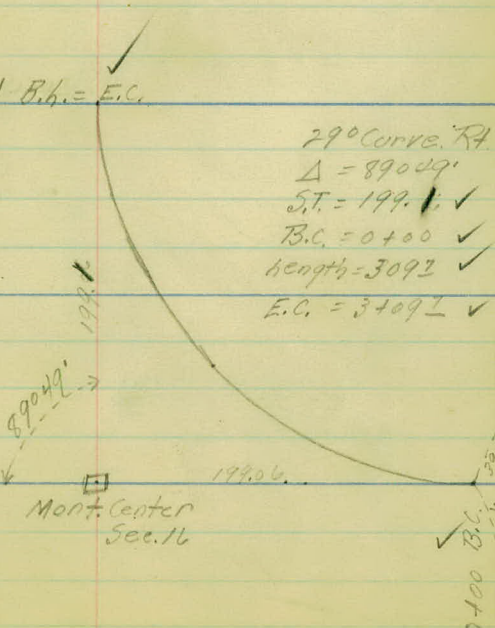 B.h. = E.C.
29° Curve. Rt.
Δ = 89°49'
S.T. = 199.
B.C. = 0+00
Length = 309⁷
E.C. = 3+09⁷
199.
89°49'
199.06
Mont. Center
Sec. 16
0+00 B.C.